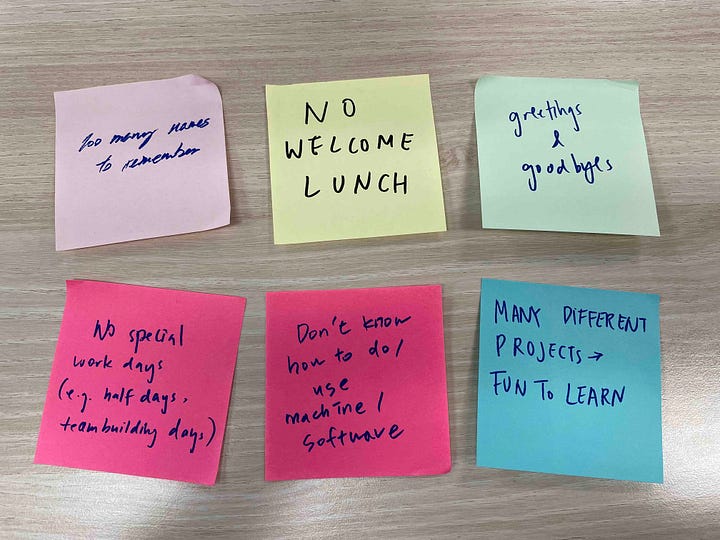 Too many names
to remember
NO
WELCOME
LUNCH
greetings
&
goodbyes
No special
work days
(e.g. half days,
teambuilding days)
Don't know
how to do/
use
machine/
software
MANY DIFFERENT
PROJECTS →
FUN TO LEARN